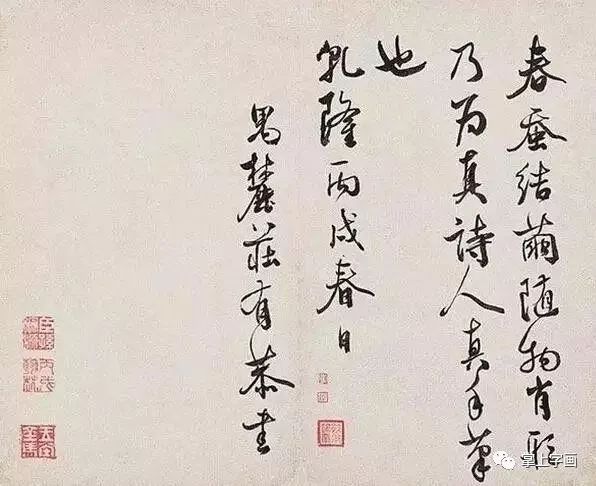 春蚕结繭随物肖形
乃为真詩人真手筆
也
乹隆丙戌春日
禺麓莊有恭书
掌上字画